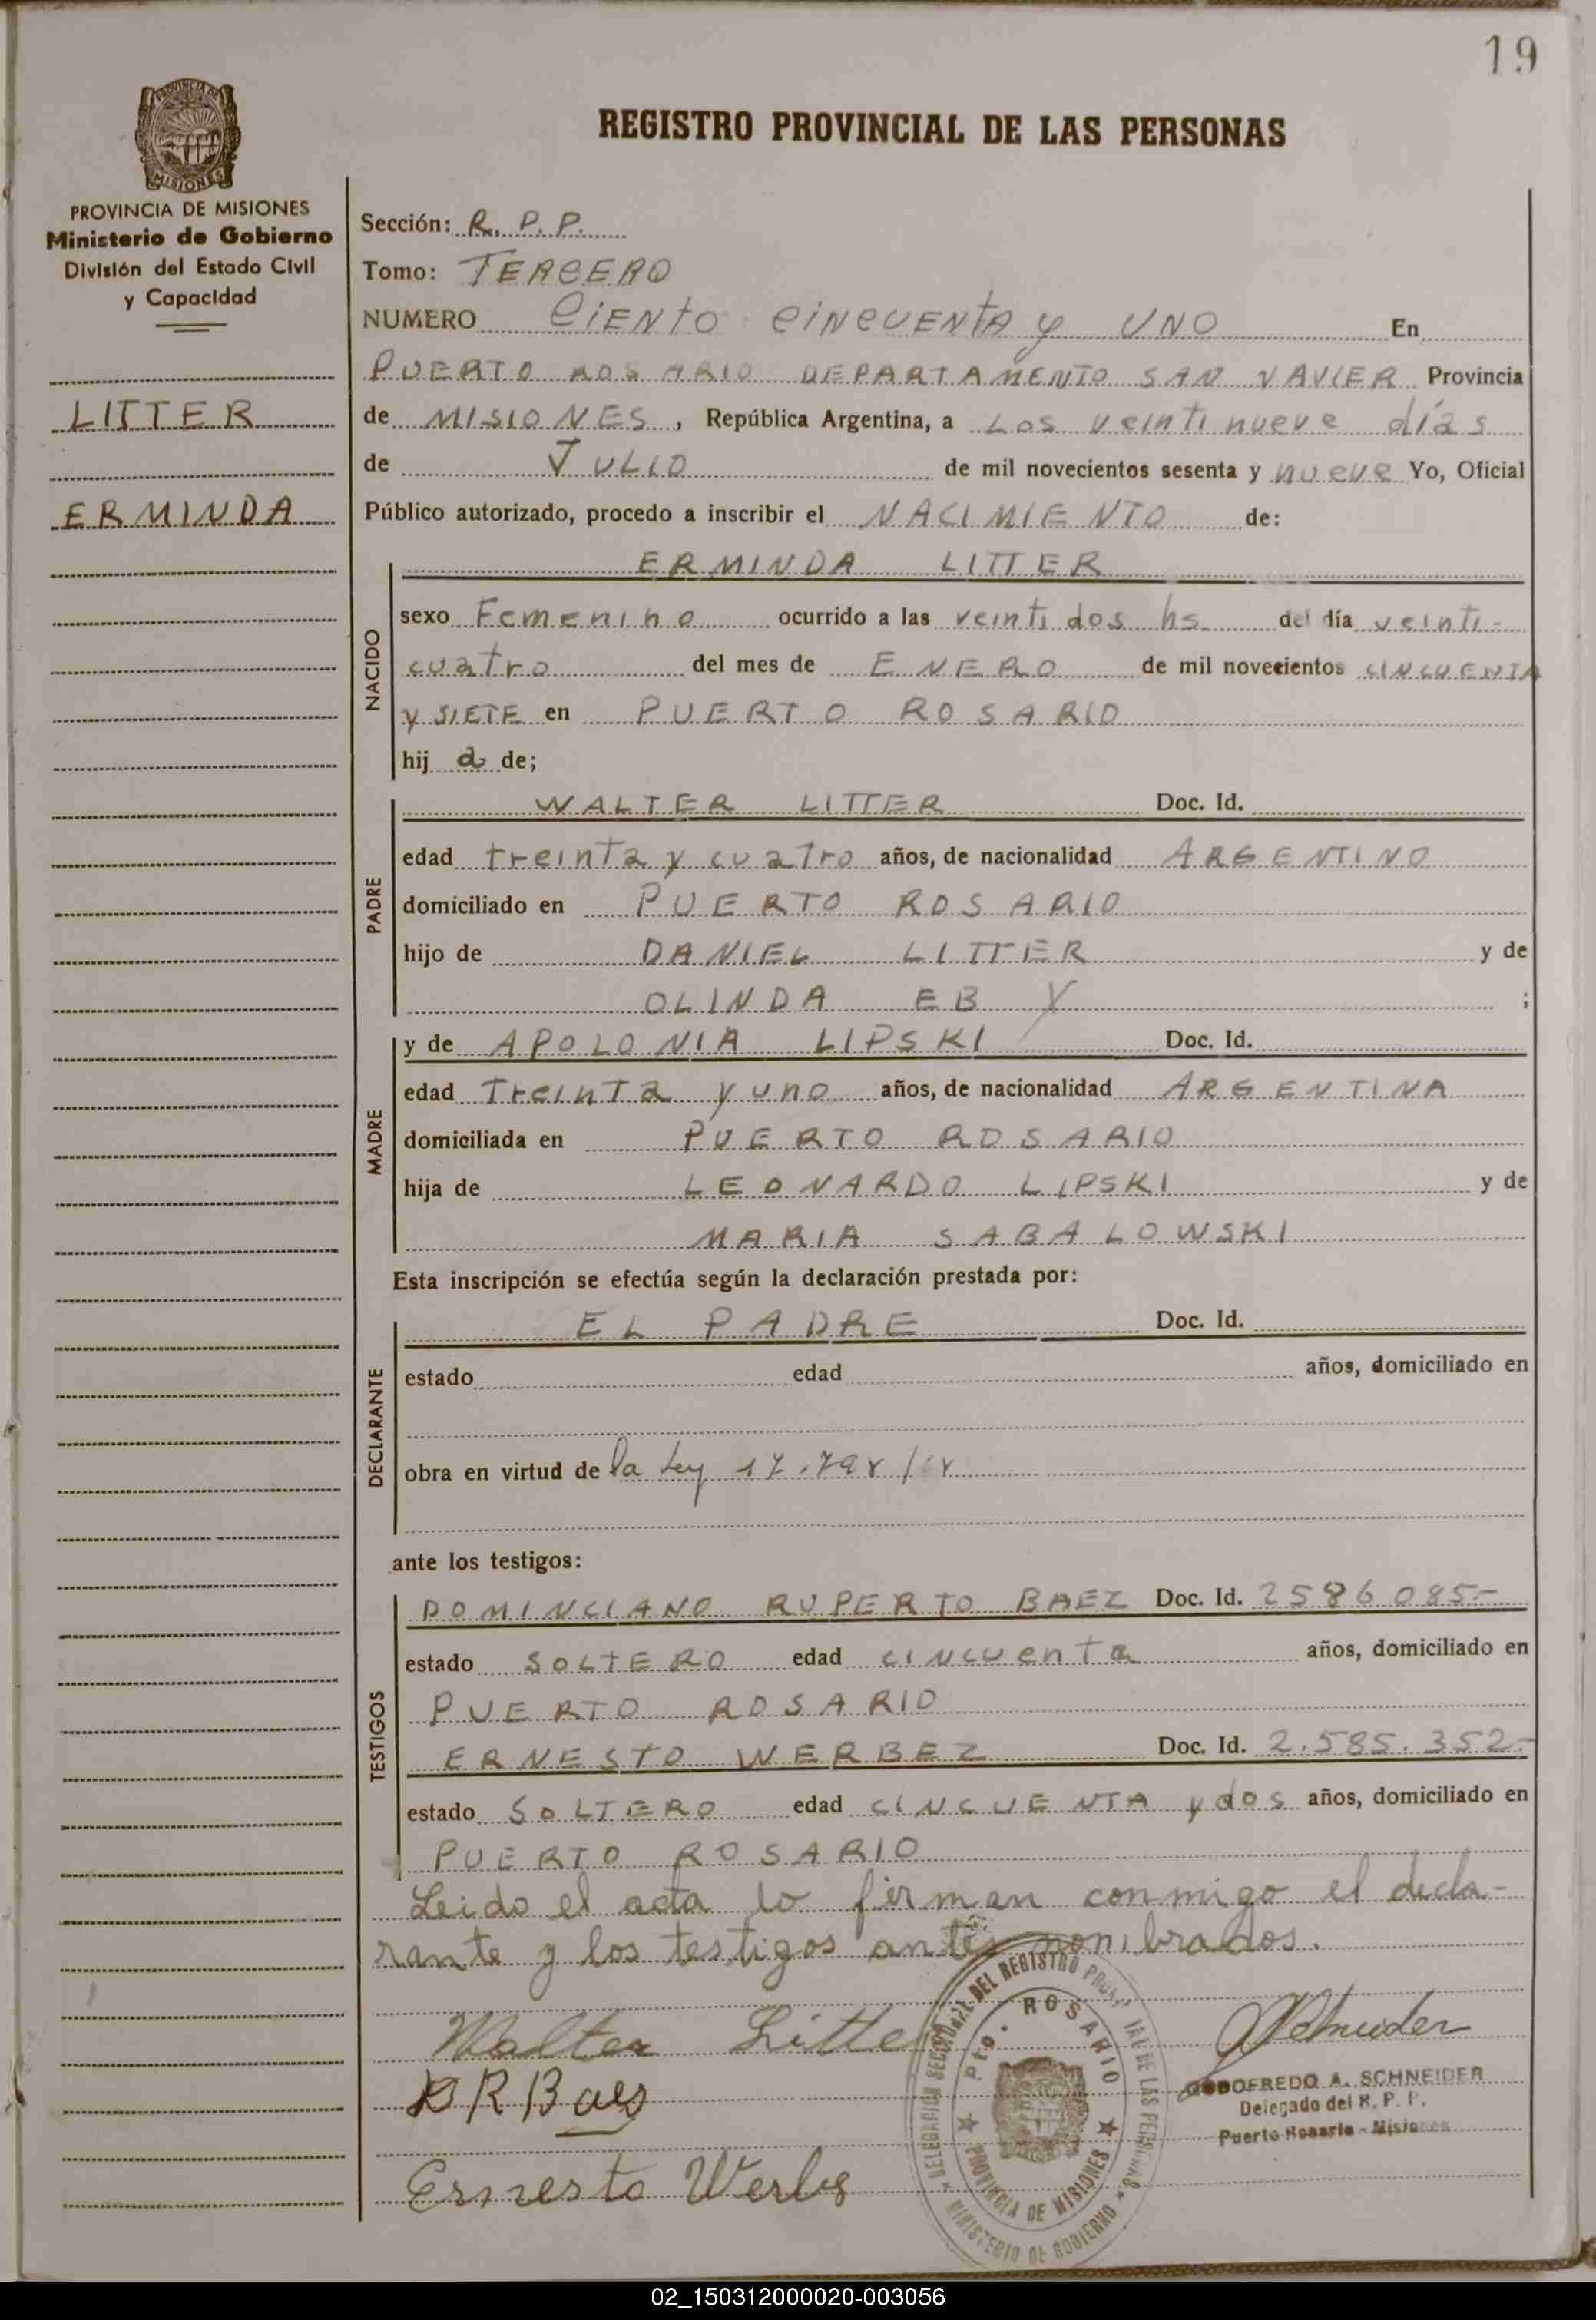 19
PROVINCIA DE
MISIONES
REGISTRO PROVINCIAL DE LAS PERSONAS
PROVINCIA DE MISIONES
Ministerio de Gobierno
División del Estado Civil
y Capacidad
LITTER
ERMINDA
Sección: R. P. P.
Tomo: TERCERO
NUMERO Ciento cincuenta y uno En
PUERTO ROSARIO DEPARTAMENTO SAN VAVIER Provincia
de MISIONES, República Argentina, a Los veinti nueve días
de JULIO de mil novecientos sesenta y nueve Yo, Oficial
Público autorizado, procedo a inscribir el NACIMIENTO de:
NACIDO
ERMINDA LITTER
sexo Femenino ocurrido a las veinti dos hs del día veinti-
cuatro del mes de ENERO de mil novecientos CINCUENTA
y SIETE en PUERTO ROSARIO
hij a de;
PADRE
WALTER LITTER Doc. Id.
edad treinta y cuatro años, de nacionalidad ARGENTINO
domiciliado en PUERTO ROSARIO
hijo de DANIEL LITTER y de
OLINDA EB ;
MADRE
y de APOLONIA LIPSKI Doc. Id.
edad Treinta y uno años, de nacionalidad ARGENTINA
domiciliada en PUERTO ROSARIO
hija de LEONARDO LIPSKI y de
MARIA SABALOWSKI
Esta inscripción se efectúa según la declaración prestada por:
DECLARANTE
EL PADRE Doc. Id.
estado edad años, domiciliado en
obra en virtud de la Ley
ante los testigos:
TESTIGOS
DOMINCIANO RUPERTO BAEZ Doc. Id. 2586085-
estado SOLTERO edad cincuenta años, domiciliado en
PUERTO ROSARIO
ERNESTO WERBEZ Doc. Id. 2.585.352-
estado SOLTERO edad CINCUENTA y dos años, domiciliado en
PUERTO ROSARIO
Leido el acta lo firman conmigo el decla-
rante y los testigos antes nombrados.
Walter Litter
D R Baes
Ernesto
DELEGACION SECCIONAL DEL REGISTRO PROVINCIAL DE LAS PERSONAS
Pto. ROSARIO
PROVINCIA DE MISIONES
MINISTERIO DE GOBIERNO
GODOFREDO A. SCHNEIDER
Delegado del R. P. P.
Puerto Rosario - Misiones
02_150312000020-003056